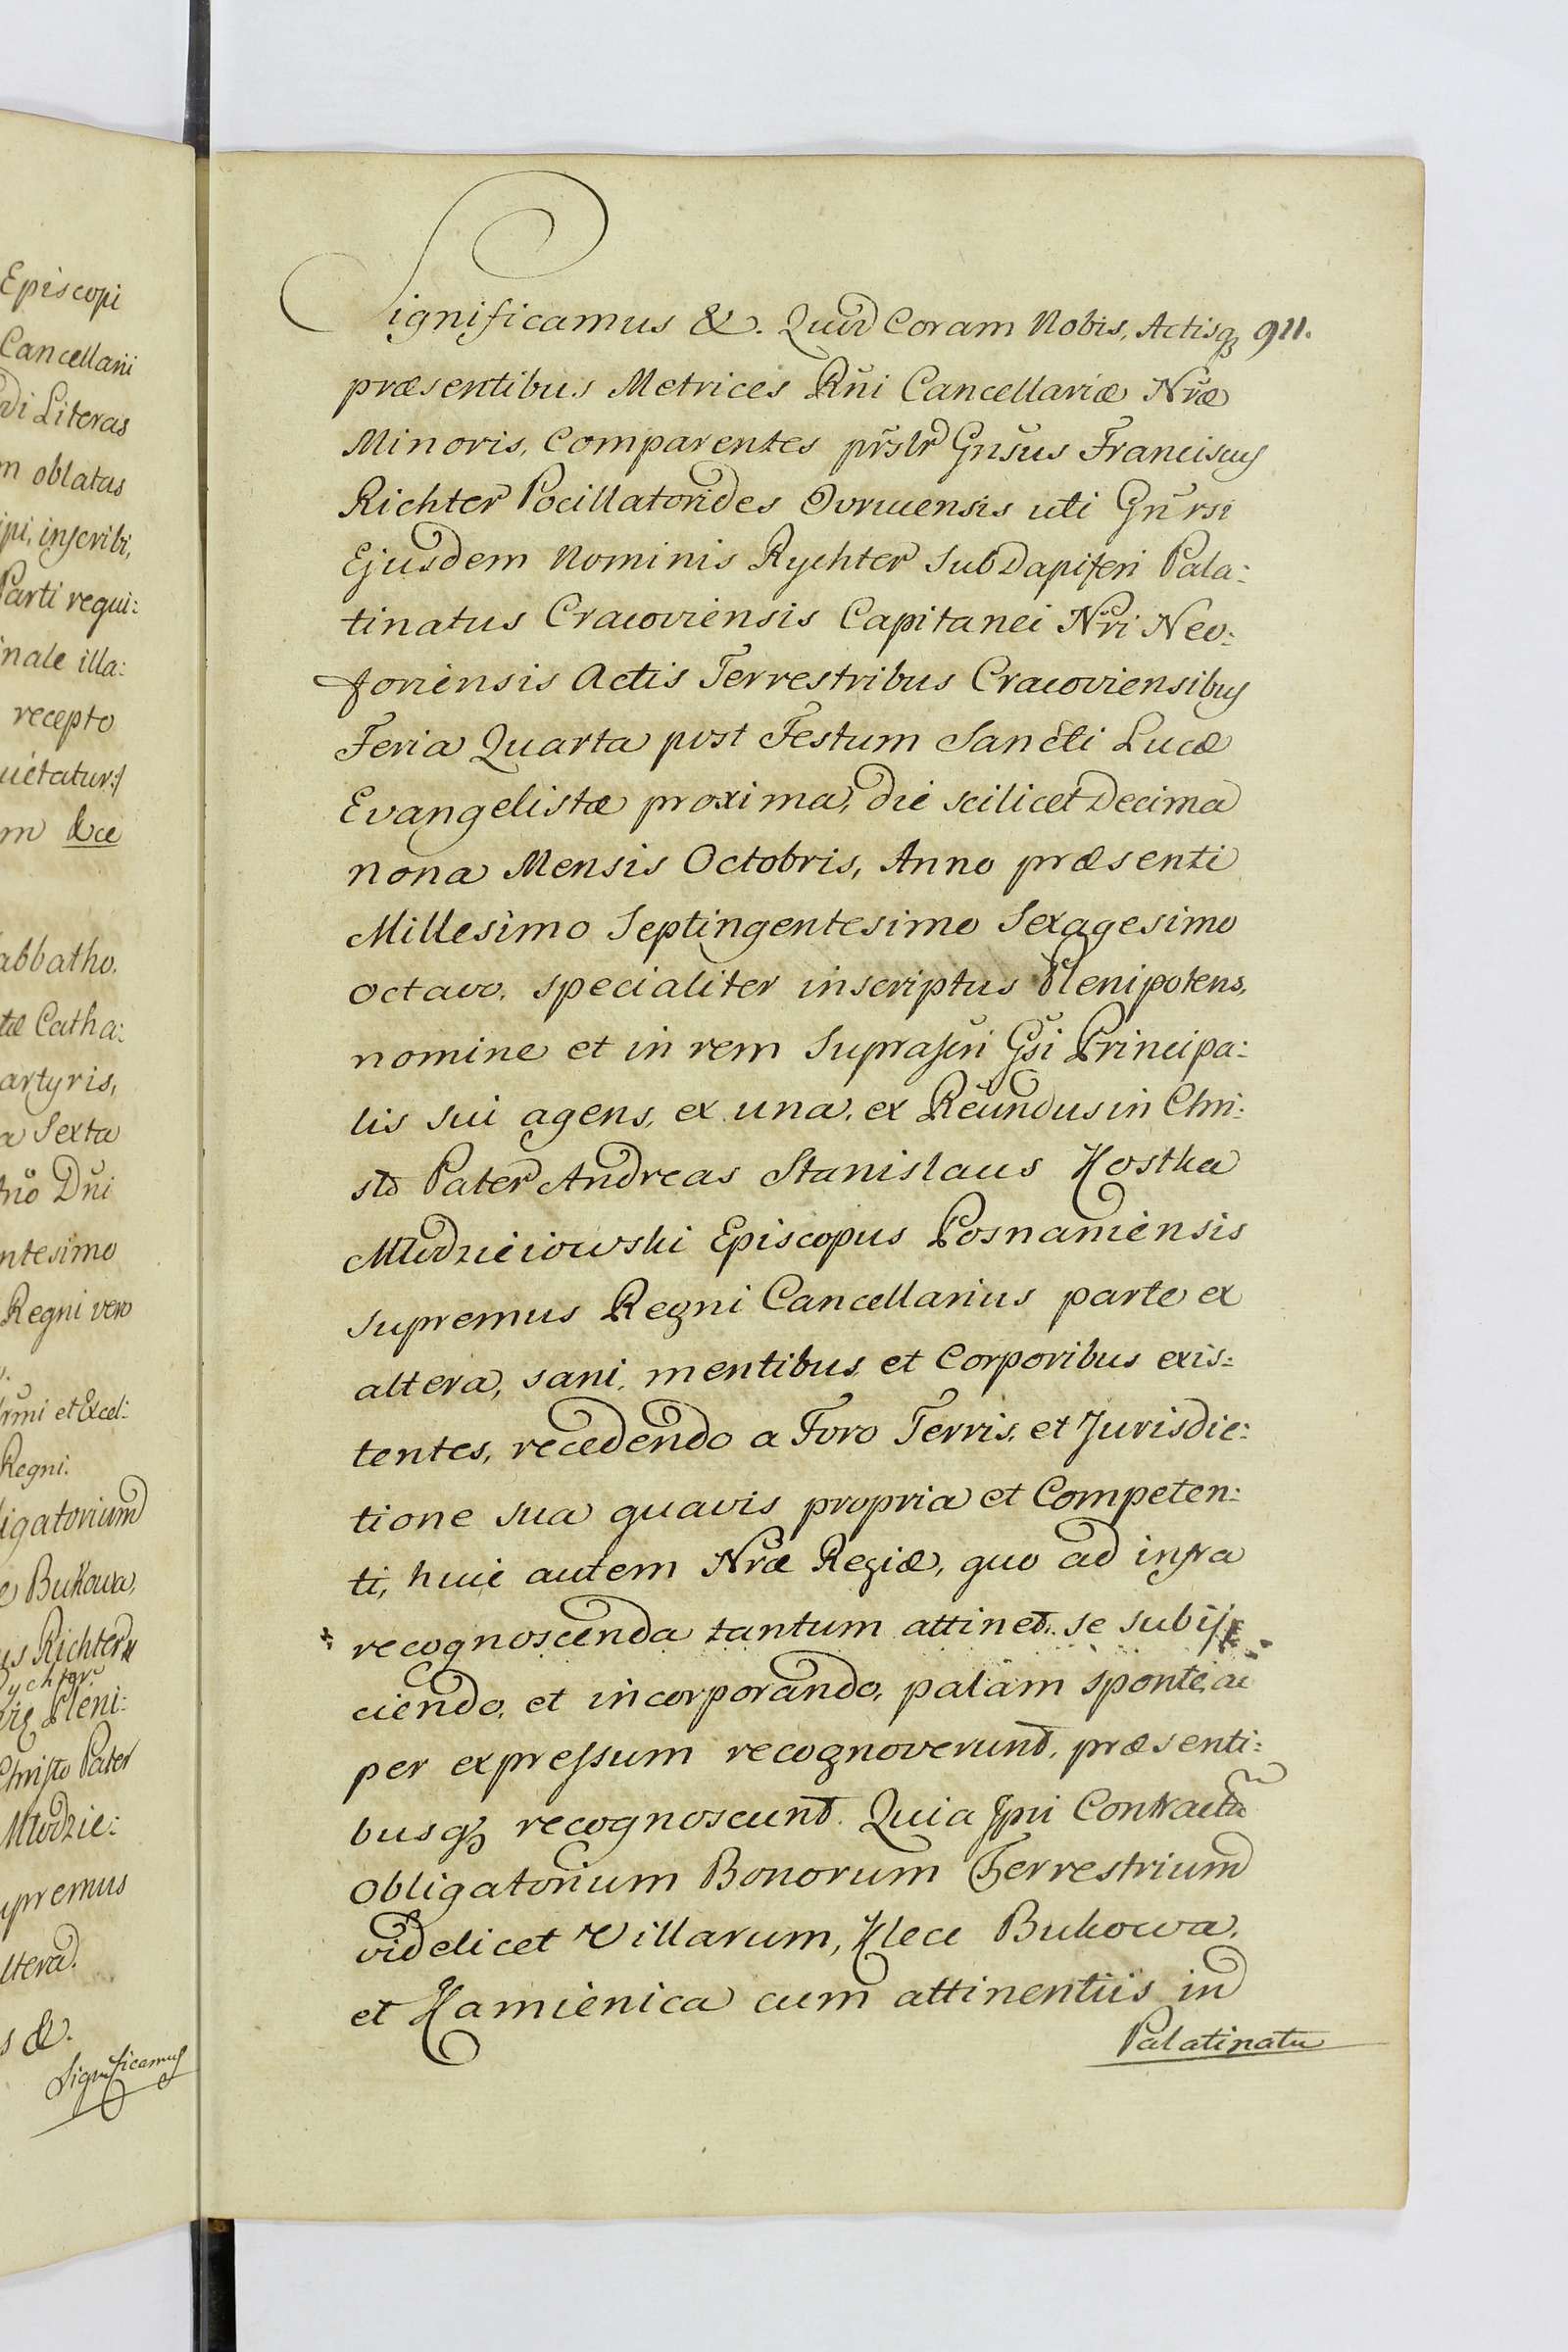 Episcopi
Cancellarii
di Literas
m oblatas
ipi, inscribi,
Parti requi:
inale illa:
recepto
uietatur:/
m &ce
abbatho.
tæ Catha:
artyris,
a Sexta
nõ Dñi
ntesimo
Regni vero
rmi et Excel:
Regni.
ligatorium
Bukowa,
us Richter
ychter
Pleni:
Christo Pater
Młodzie:
upremus
ltera.
s &.
Significamus
Significamus &. Quod Coram Nobis, Actisq3 911.
præsentibus Metrices Rñi Cancellariæ Nræ
Minoris, Comparentes prslr Gnsus Franciscus
Richter Pocillatorides Ovrucensis uti Gnrsi
Ejusdem Nominis Rychter SubDapiferi Pala:
tinatus Cracoviensis Capitanei Nri Neo:
foriensis Actis Terrestribus Cracoviensibus
Feria Quarta post Festum Sancti Lucæ
Evangelistæ proxima, die scilicet Decima
nona Mensis Octobris, Anno præsenti
Millesimo Septingentesimo Sexagesimo
octavo, specialiter inscriptus Plenipotens,
nomine et in rem Suprascri Gsi Principa:
lis sui agens, ex una, ex Reundus in Chri:
sto Pater Andreas Stanislaus Kostka
Młodzieiowski Episcopus Posnaniensis
supremus Regni Cancellarius parte ex
altera, sani, mentibus et Corporibus exis:
tentes, recedendo a Foro Terris, et Jurisdic:
tione sua quavis propria et Competen:
ti, huic autem Nræ Regiæ, quo ad infra
recognoscenda tantum attinet, se subij
ciendo, et incorporando, palàm sponte, ac
per expressum recognoverunt, præsenti:
busq3 recognoscunt. Quia Ipsi Contractũ
Obligatorium Bonorum Terrestrium
videlicet Villarum, Klecie Bukowa,
et Kamienica cum attinentiis in
Palatinatu